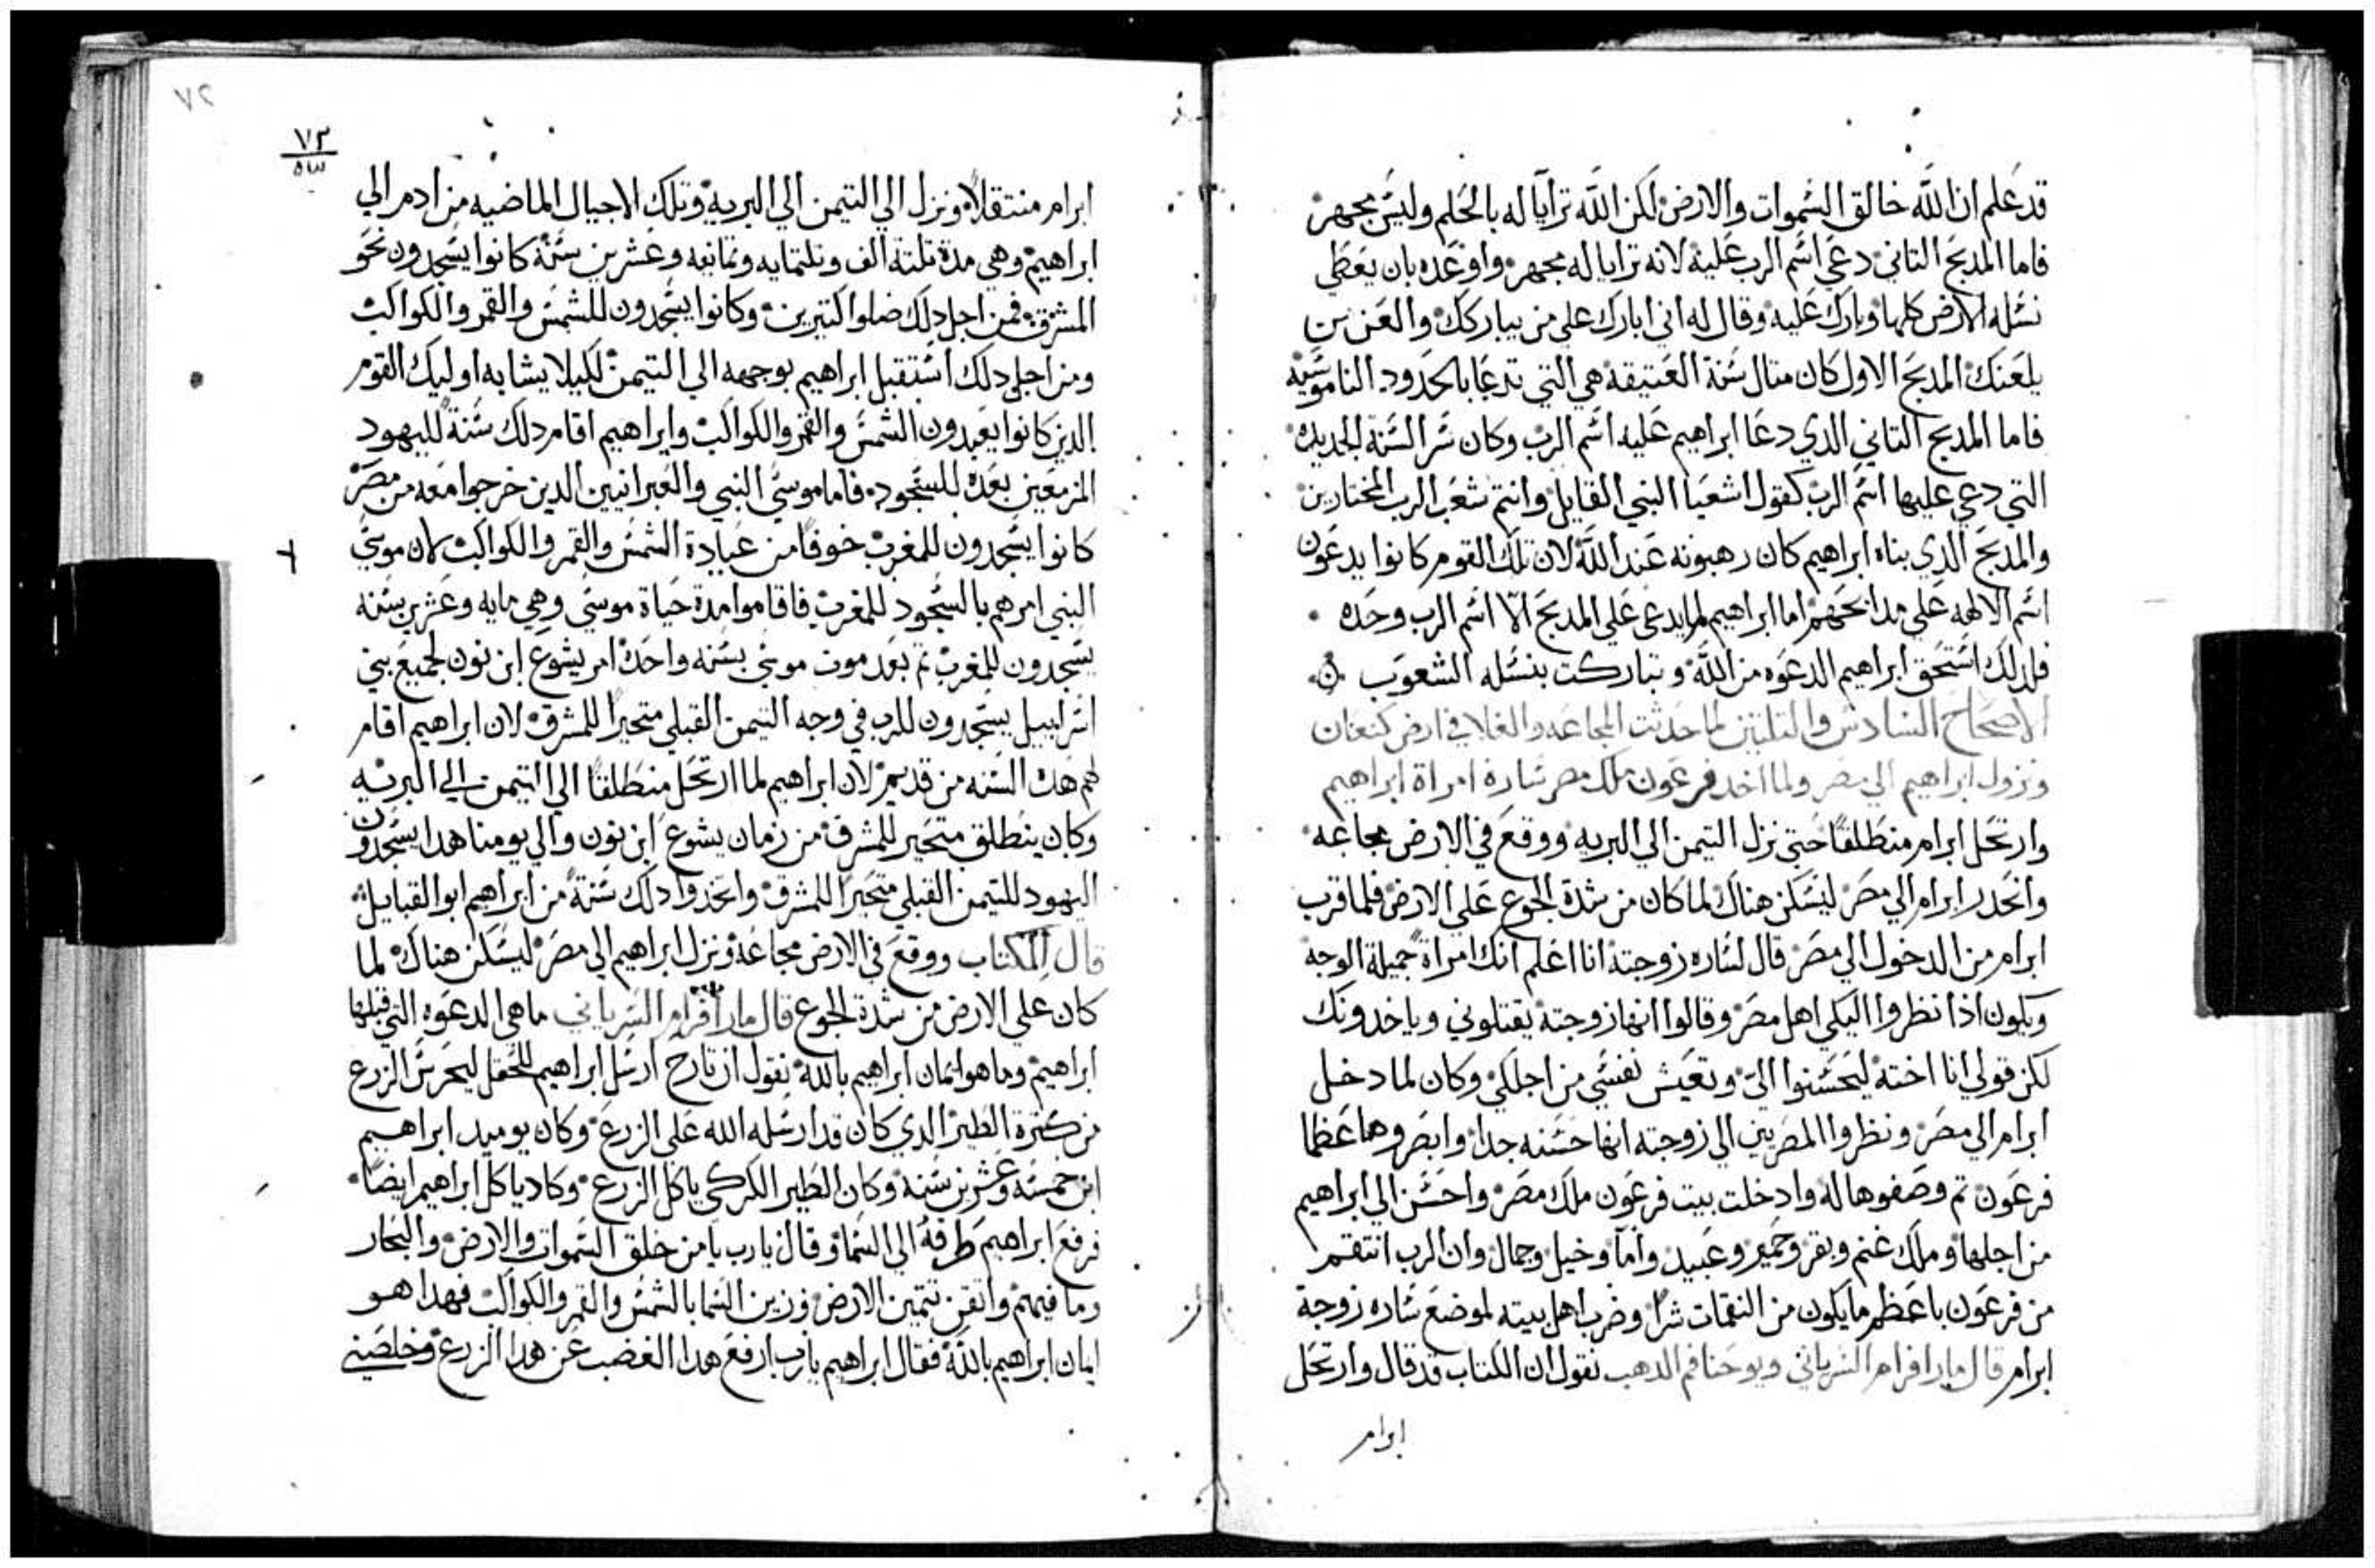 قد علم ان الله خالق السموات والارض لكن الله ترايا له بالحلم وليس مجهر
فاما المدبح التاني دعي اسم الرب عليه لانه ترايا له مجهر واوعده بان يعطي
نسله الارض كلها وبارك عليه وقال له اني ابارك علي من يباركك والعن من
يلعنك المدبح الاول كان متال سنة العتيقة هي التي تدعا بالحدود الناموسيه
فاما المدبح التاني الدي دعا ابراهيم عليه اسم الرب وكان سر السنة الجديده
التي دعي عليها اسم الرب كقول اشعيا النبي القايل وانتم شعب الرب المختارين
والمدبح الدي بناه ابراهيم كان رهبونه عند الله لان تلك القوم كانوا يدعون
اسم الالهه علي مدابحهم اما ابراهيم لم يدعي علي المدبح الا اسم الرب وحده
فلدلك استحق ابراهيم الدعوه من الله وتباركت بنسله الشعوب
الاصحاح السادس والتلتين لما حدثت المجاعه والغلا في ارض كنعان
ونزول ابراهيم الي مصر ولما اخد فرعون ملك مصر ساره امراة ابراهيم
وارتحل ابرام منطلقا حتي نزل التيمن الي البريه ووقع في الارض مجاعه
وانحدر ابرام الي مصر ليسكن هناك لما كان من شدة الجوع علي الارض فلما قرب
ابرام من الدخول الي مصر قال لساره زوجته انا اعلم انك امراة جميلة الوجه
ويكون اذا نظروا اليكي اهل مصر وقالوا انها زوجته يقتلوني وياخدونك
لكن قولي انا اخته ليحسنوا الي وتعيش نفسي من اجلكي وكان لما دخل
ابرام الي مصر ونظروا المصريين الي زوجته انها حسنه جدا وابصروها عظما
فرعون تم وصفوها له وادخلت بيت فرعون ملك مصر واحسن الي ابراهيم
من اجلها وملك غنم وبقر وحمير وعبيد واما وخيل وجمال وان الرب انتقم
من فرعون باعظم ما يكون من النقمات شرا وضرب اهل بيته لموضع ساره زوجة
ابرام قال مار افرام السرياني ويوحنا فم الدهب نقول ان الكتاب قد قال وارتحل
ابرام
٧٢
٧٣
ابرام منتقلا ونزل الي التيمن الي البريه وتلك الاجيال الماضيه من ادم الي
ابراهيم وهي مدة تلتة الف وتلتمايه وتمانيه وعشرين سنة كانوا يسجدون نحو
المشرق فمن اجل دلك ضلوا كتيرين وكانوا يسجدون للشمس والقمر والكواكب
ومن اجل دلك استقبل ابراهيم بوجهه الي التيمن لكيلا يشابه اوليك القوم
الدين كانوا يعبدون الشمس والقمر والكواكب وابراهيم اقام دلك سنة لليهود
المزمعين بعده للسجود فاما موسي النبي والعبرانيين الدين خرجوا معه من مصر
كانوا يسجدون للمغرب خوفا من عبادة الشمس والقمر والكواكب لان موسي
النبي امرهم بالسجود للمغرب فاقاموا مدة حياة موسي وهي مايه وعشرين سنه
يسجدون للمغرب تم بعد موت موسي بسنه واحده امر يشوع ابن نون لجميع بني
اسراييل يسجدون للرب في وجه التيمن القبلي متحيرا للمشرق لان ابراهيم اقام
لهم هده السنه من قديم لان ابراهيم لما ارتحل منطلقا الي التيمن الي البريه
وكان ينطلق متحير للمشرق من زمان يشوع ابن نون والي يومنا هدا يسجدون
اليهود للتيمن القبلي متحيرا للمشرق واتخدوا دلك سنة من ابراهيم ابو القبايل
قال الكتاب ووقع في الارض مجاعه ونزل ابراهيم الي مصر ليسكن هناك لما
كان علي الارض من شدة الجوع قال مار افرام السرياني ما هي الدعوه التي قبلها
ابراهيم وما هو ايمان ابراهيم بالله نقول ان تارح ارسل ابراهيم للحقل ليحرس الزرع
من كترة الطير الدي كان قد ارسله الله علي الزرع وكان يوميد ابراهيم
ابن خمسه وعشرين سنه وكان الطير الكركي ياكل الزرع وكاد ياكل ابراهيم ايضا
فرفع ابراهيم طرفه الي السما وقال يارب يا من خلق السموات والارض والبحار
وما فيهم واتقن تتمين الارض وزين السما بالشمس والقمر والكواكب فهدا هو
ايمان ابراهيم بالله فقال ابراهيم يارب ارفع هدا الغضب عن هدا الزرع وخلصني